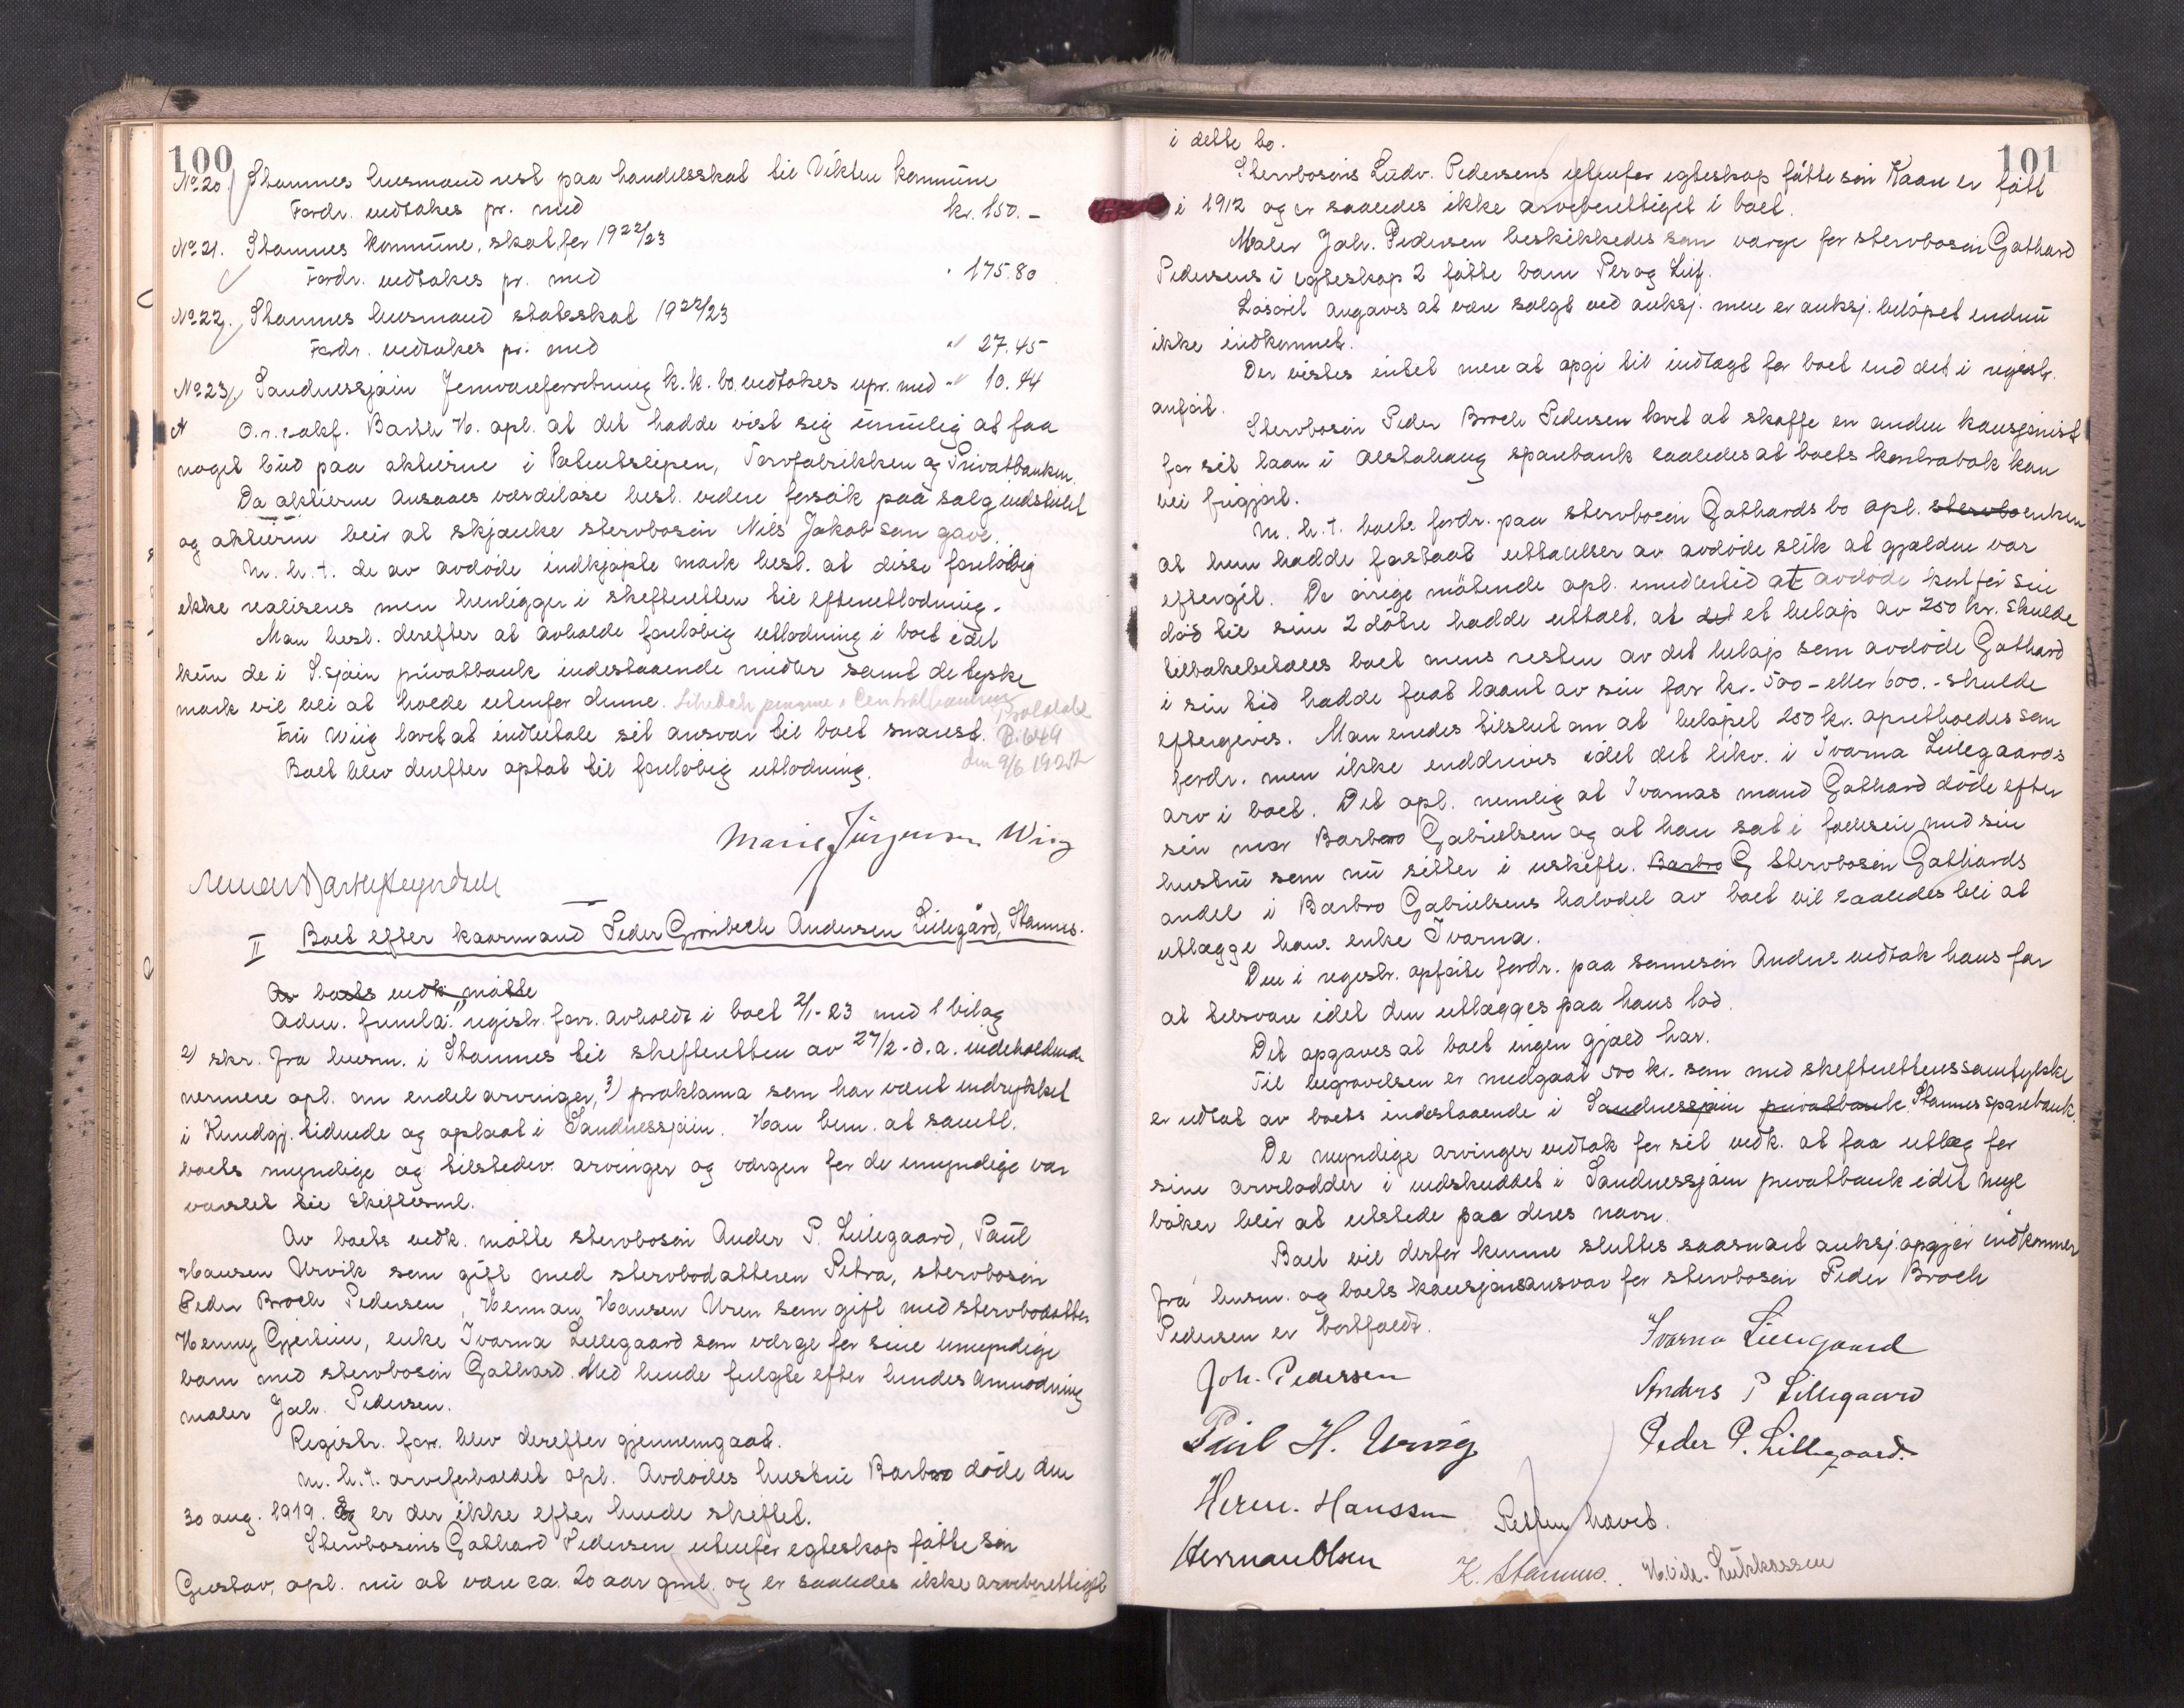 100
No 20. Stamnes lensmand rest paa handelsskat til Vikten kommune
Fordr. vedtokes pr. med kr. 150.-
No 21. Stamnes kommune, skat for 1922/23
Fordr. vedtokes pr. med " 175.80
No 22. Stamnes lensmand statsskat 1922/23
Fordr. vedtokes pr. med " 27.45
No 23. Sandnessjøen Jernvareforretning k.k. bo. vedtokes upr. med " 10.44
O.r.sakf. Barth H. opl. at det hadde vist sig umulig at faa
noget bud paa aktierne i Patentslipen, Torvfabrikken og Privatbanken.
Da aktierne ansaaes værdiløse besl. videre forsøk paa salg indstillet
og aktierne blir at skjænke stervbosøn Nils Jakob som gave.
M.h.t. de av avdøde indkjøpte mark besl. at disse foreløbig
ikke realiseres men henligger i skifteretten til efterutlodning.
Man besl. derefter at avholde foreløbig utlodning i boet idet
kun de i S.sjøen privatbank indestaaende midler samt de tyske
mark vil bli at holde utenfor denne.
Fru Wiig lovet at indbetale sit ansvar til boet snarest. B. 649
Boet blev derefter optat til foreløbig utlodning. den 9/6 192
Marie Jürgensen Wiig
II Boet efter kaarmand Peder Grønbech Andersen Lillegård, Stamnes.
Av boets vedk. møtte
Adm. fremla: 1) registr. forr. avholdt i boet 2/1-23 med 1 bilag
2) skr. fra lensm. i Stamnes til skifteretten av 27/2-d.a. indeholdende
nermere opl. om endel arvinger, 3) proklama som har været indrykket
i Kundgj. tidende og oplaat i Sandnessjøen. Han bem. at samtl.
boets myndige og tilstedev. arvinger og værgen for de umyndige var
varslet til skiftesml.
Av boets vedk. møtte stervbosøn Anders P. Lillegaard, Paul
Hansen Urvik som gift med stervbodatteren Petra, stervbosøn
Peder Broch Pedersen, Herman Hansen Uren som gift med stervbodatter
Henny Gjertine, enke Ivarna Lillegaard som værge for sine umyndige
barn med stervbosøn Gathard. Med hende fulgte efter hendes anmodning
maler Joh. Pedersen.
Registr. forr. blev derefter gjennemgaat.
M.h.t. arveforholdet opl. Avdødes hustru Barbro døde den
30 aug. 1919. Og er der ikke efter hende skiftet.
Stervbosøns Gathard Pedersen utenfor egteskap fødte søn
Gustav, opl. nu at være ca. 20 aar gml. og er saaledes ikke arveberettiget
101
i dette bo.
Stervbosøns Ludv. Pedersens utenfor egteskap fødte søn Kaare er født
i 1912 og er saaledes ikke arveberettiget i boet.
Maler Joh. Pedersen beskikkedes som værge for stervbosøn Gathard
Pedersens i egteskap 2 fødte barn Per og Leif.
Løsøret angaves at være solgt ved auksj. men er auksj. beløpet endnu
ikke indkommet.
Der vistes intet mere at opgi til indtægt for boet end det i registr.
anført.
Stervbosøn Peder Broch Pedersen lovet at skaffe en anden kausjonist
for sit laan i Alstahaug sparebank saaledes at boets kontrabok kan
bli frigjort.
M.h.t. boets fordr. paa stervbosøn Gathards bo opl. stervboenken
at hun hadde forstaat uttalelser av avdøde slik at gjælden var
eftergit. De øvrige møtende opl. imidlertid at avdøde kort før sin
død til sine 2 døtre hadde uttalt, at det et beløp av 250 kr. skulde
tilbakebetales boet mens resten av det beløp som avdøde Gathard
i sin tid hadde faat laant av sin far kr. 500 - eller 600.- skulde
eftergives. Man enedes tilslut om at beløpet 250 kr. opretholdes som
fordr. men ikke inddrives idet det likv. i Ivarna Lillegaards
arv i boet. Det opl. nemlig at Ivarnas mand Gathard døde efter
sin mor Barbro Gabrielsen og at han sat i fællesein med sin
hustru som nu sitter i uskifte. Barbro G Stervbosøn Gathards
andel i Barbro Gabrielsens halvdel av boet vil saaledes bli at
utlægge hans enke Ivarna.
Den i registr. opførte fordr. paa sønnesøn Anders vedtok hans far
at tilsvare idet den utlægges paa hans lod.
Det opgaves at boet ingen gjæld har.
Til begravelsen er medgaat 500 kr. som med skifterettens samtykke
er uttat av boets indestaaende i Sandnessjøen privatbank. Stamnes sparebank.
De myndige arvinger vedtok for sit vedk. at faa utlæg for
sine arvelodder i indskuddet i Sandnessjøen privatbank idet nye
bøker blir at utstede paa deres navn.
Boet vil derfor kunne sluttes saasnart auksj. opgjør indkommer
fra lensm. og boets kausjonsansvar for stervbosøn Peder Broch
Pedersen er bortfaldt.
Ivarna Lillegaard
Joh. Pedersen
Anders P Lillegaard
Paul H. Urvig
Peder P. Lillegaard.
Herm. Hanssen
Retten hævet.
Herman Olsen
K. Stamnes.